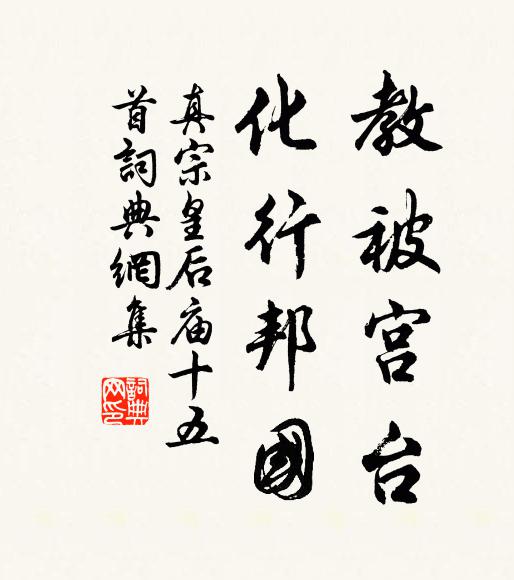 教被宫台
化行邦國
真宗皇后庙十五
首詞典網集
詞典
网印